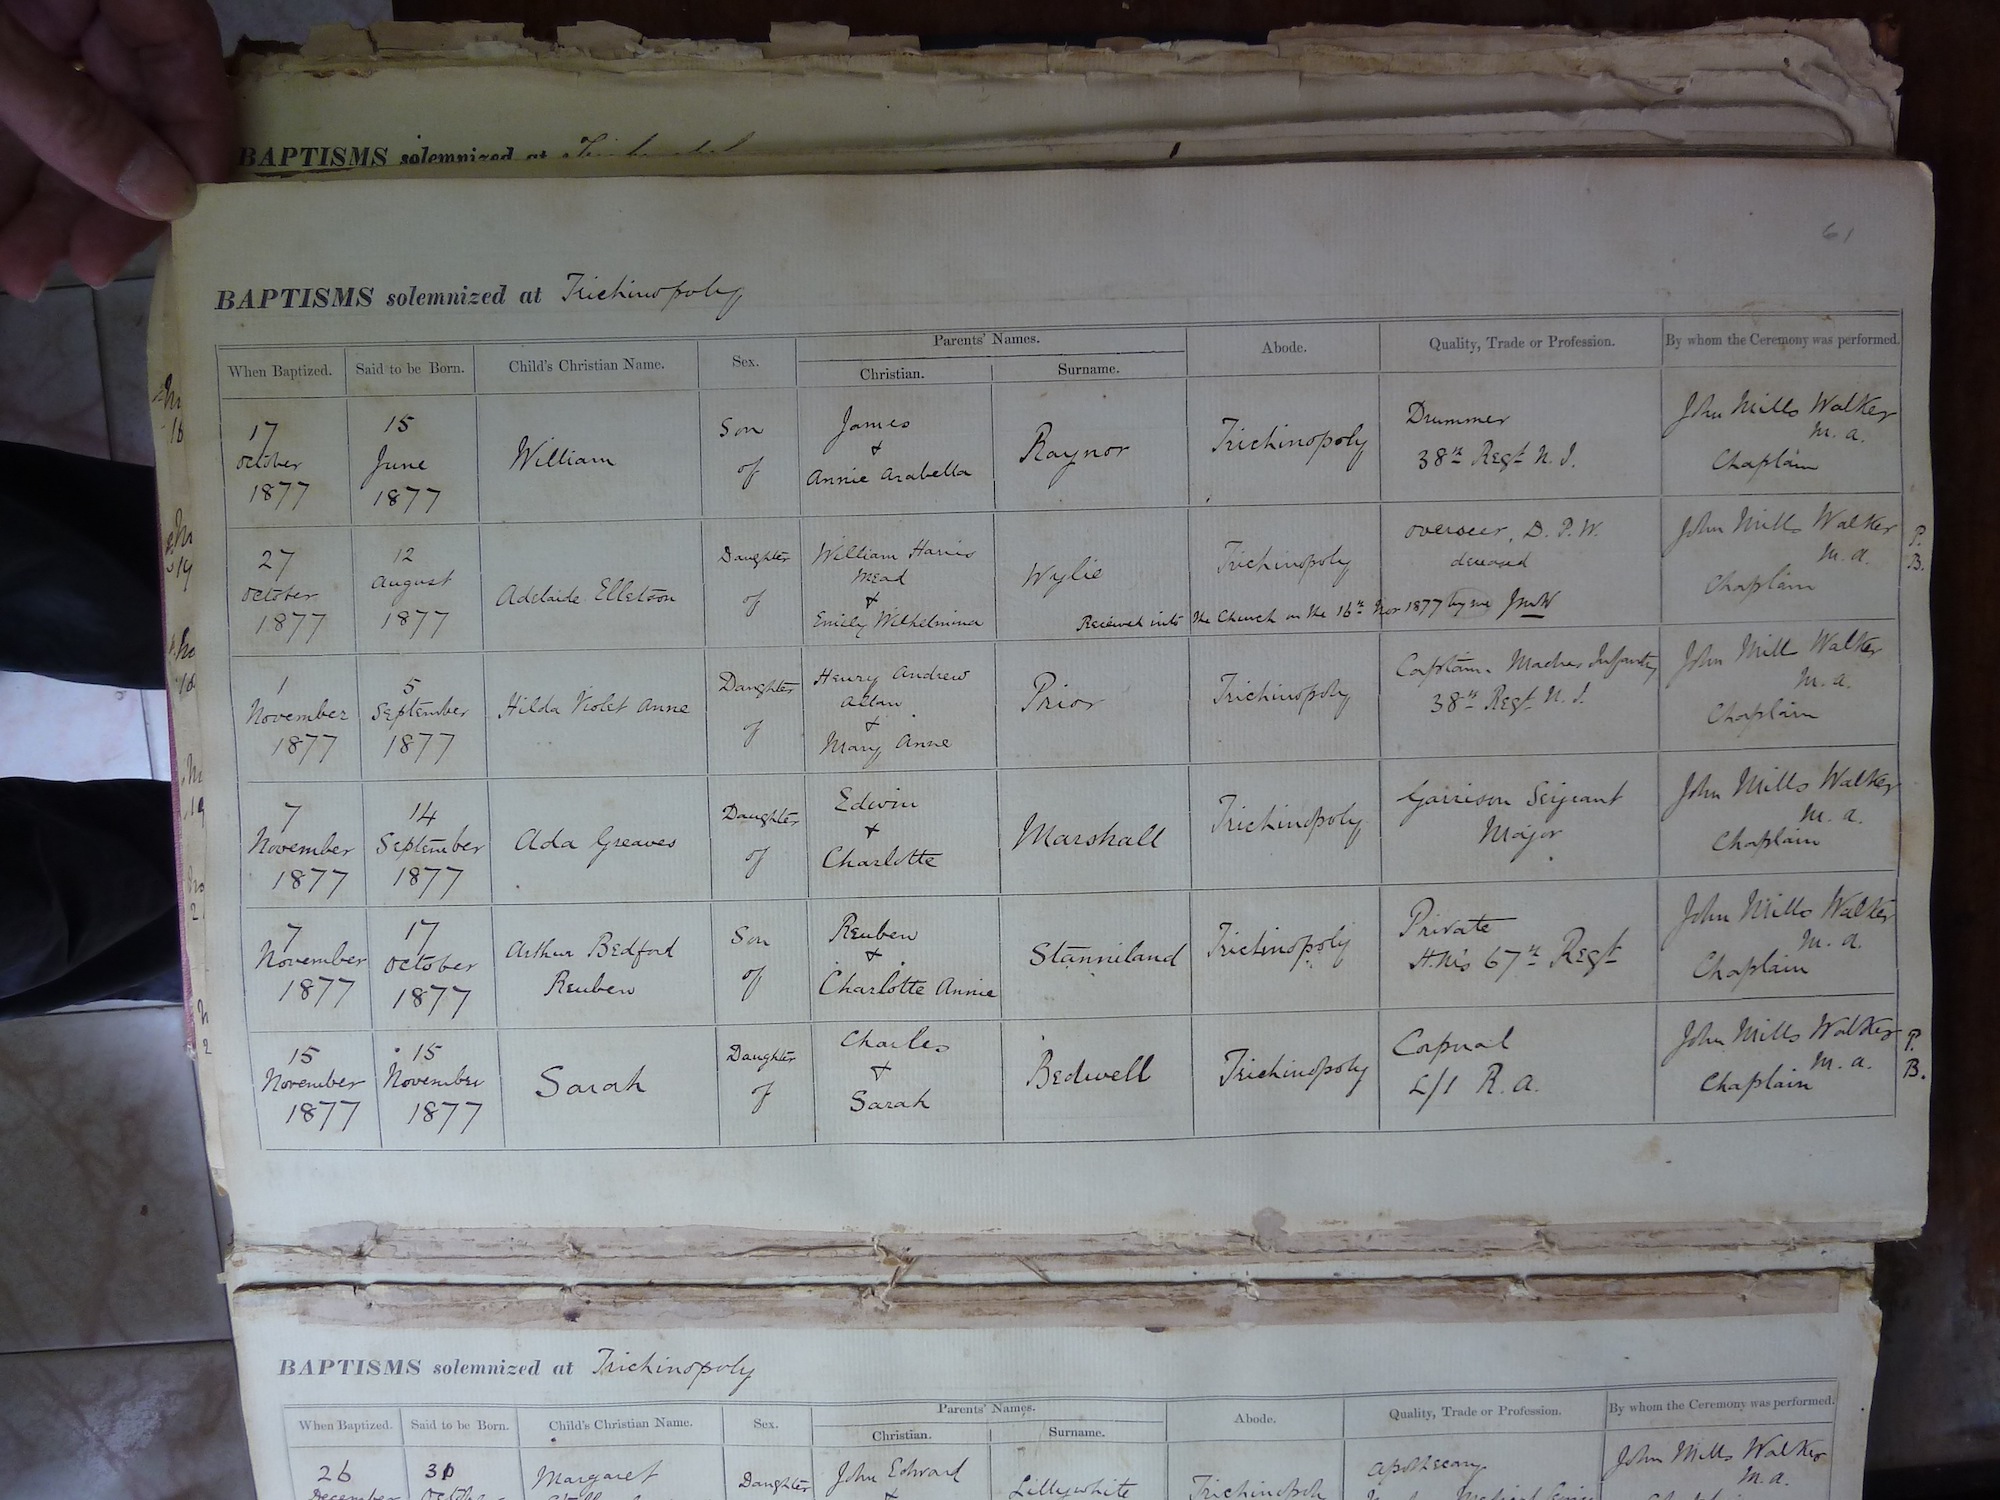 BAPTISMS solemnized at
61
BAPTISMS solemnized at Trichinopoly
When Baptized. Said to be Born. Child's Christian Name. Sex. Parents' Names. Abode. Quality, Trade or Profession. By whom the Ceremony was performed.
Christian. Surname.
17 October 1877
15 June 1877
William
Son of
James & Annie Arabella
Raynor
Trichinopoly
Drummer
38th Regt N. I.
John Mills Walker
M. A.
Chaplain
27 October 1877
12 August 1877
Adelaide Elletson
Daughter of
William Harris
Mead
&
Emily Wilhelmina
Wylie
Trichinopoly
Overseer, D. P. W.
deceased
Received into the Church on the 16th Nov 1877 by me JMW
John Mills Walker
M. A.
Chaplain
P.
B.
1 November 1877
5 September 1877
Hilda Violet Anne
Daughter of
Henry Andrew
Allan
&
Mary Anne
Prior
Trichinopoly
Captain. Madras Infantry
38th Regt N. I.
John Mills Walker
M. A.
Chaplain
7 November 1877
14 September 1877
Ada Greaves
Daughter of
Edwin & Charlotte
Marshall
Trichinopoly
Garrison Serjeant
Major
John Mills Walker
M. A.
Chaplain
7 November 1877
17 October 1877
Arthur Bedford
Reuben
Son of
Reuben & Charlotte Annie
Stanniland
Trichinopoly
Private
H.M's 67th Regt
John Mills Walker
M. A.
Chaplain
15 November 1877
15 November 1877
Sarah
Daughter of
Charles & Sarah
Bedwell
Trichinopoly
Corporal
L/1 R. A.
John Mills Walker
M. A.
Chaplain
P.
B.
BAPTISMS solemnized at Trichinopoly
When Baptized. Said to be Born. Child's Christian Name. Sex. Parents' Names. Abode. Quality, Trade or Profession. By whom the Ceremony was performed.
Christian. Surname.
26 December
30 October
Margaret
Daughter
John Edward
&
Lillywhite
Trichinopoly
Apothecary
John Mills Walker
M. A.